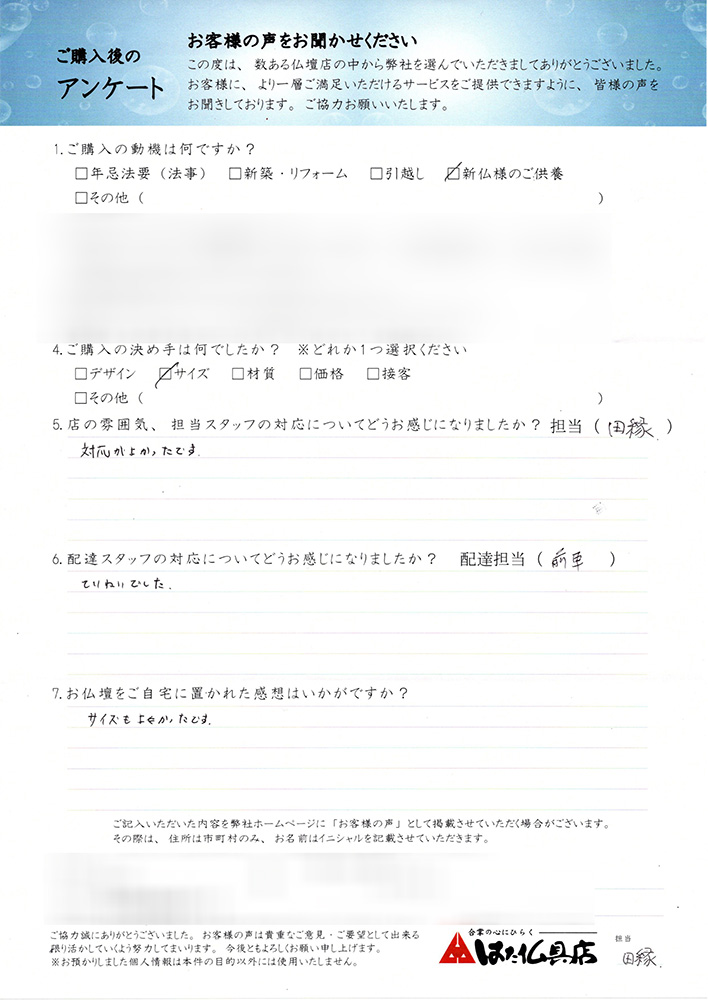 ご購入後の
アンケート
お客様の声をお聞かせください
この度は、数ある仏壇店の中から弊社を選んでいただきましてありがとうございました。
お客様に、より一層ご満足いただけるサービスをご提供できますように、皆様の声を
お聞きしております。ご協力お願いいたします。
1.ご購入の動機は何ですか？
□年忌法要（法事） □新築・リフォーム □引越し ☑新仏様のご供養
□その他（ ）
4.ご購入の決め手は何でしたか？ ※どれか1つ選択ください
□デザイン ☑サイズ □材質 □価格 □接客
□その他（ ）
5.店の雰囲気、担当スタッフの対応についてどうお感じになりましたか？ 担当（田縁）
対応がよかったです.
6.配達スタッフの対応についてどうお感じになりましたか？ 配達担当（前車）
ていねいでした.
7.お仏壇をご自宅に置かれた感想はいかがですか？
サイズもよかったです.
ご記入いただいた内容を弊社ホームページに「お客様の声」として掲載させていただく場合がございます。
その際は、住所は市町村のみ、お名前はイニシャルを記載させていただきます。
ご協力誠にありがとうございました。お客様の声は貴重なご意見・ご要望として出来る
限り活かしていくよう努力してまいります。今後ともよろしくお願い申し上げます。
※お預かりしました個人情報は本件の目的以外には使用いたしません。
合掌の心にひらく
はた仏具店
担当
田縁.